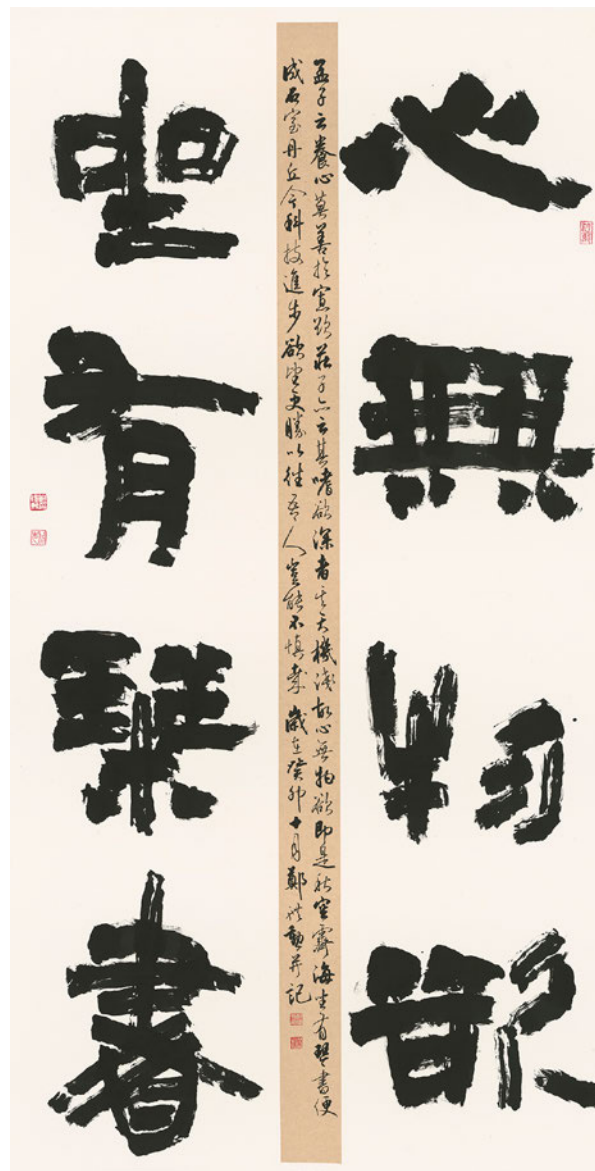 心無物欲
孟子云養心莫善於寡欲莊子亦云其嗜欲深者其天機淺故心無物欲即是秋空霽海坐有琴書便
成石室丹丘今科技進步欲望更勝以往吾人豈能不慎歟歲在癸卯十月鄭礼勳并記
坐有琹書